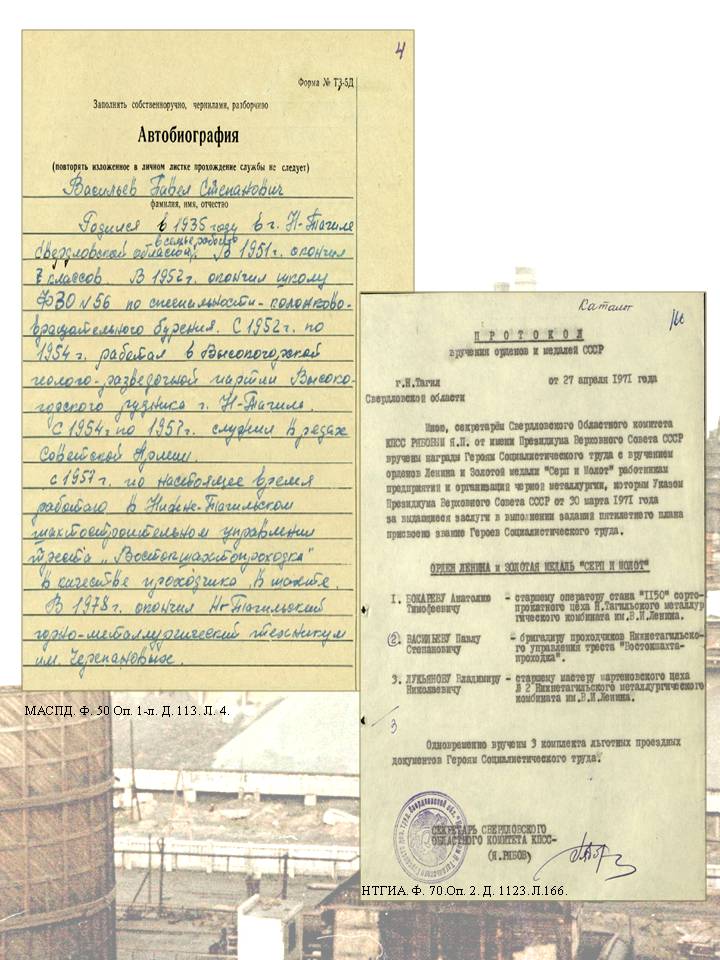 4
Форма № Т3-5Д
Заполнять собственноручно, чернилами, разборчиво
Автобиография
(повторять изложенное в личном листке прохождение службы не следует)
Васильев Павел Степанович
фамилия, имя, отчество
Родился в 1935 году в г. Н-Тагиле
в семье рабочего
Свердловской области. В 1951 г. окончил
7 классов. В 1952 г. окончил школу
ФЗО №56 по специальности - колонково-
вращательного бурения. С 1952 г. по
1954 г. работал в Высокогорской
геолого-разведочной партии Высоко-
горского рудника г. Н-Тагила.
С 1954 г. по 1957 г. служил в рядах
Советской Армии.
С 1957 г. по настоящее время
работаю в Нижне-Тагильском
шахтостроительном управлении
треста „Востокшахтопроходка"
в качестве проходчика в шахте.
В 1978 г. окончил Н-Тагильский
горно-металлургический техникум
им. Черепановых.
МАСПД. Ф. 50 Оп. 1-л. Д. 113. Л. 4.
Каталог
ПРОТОКОЛ
вручения орденов и медалей СССР
г.Н.Тагил от 27 апреля 1971 года
Свердловской области
Мною, секретарём Свердловского Областного комитета
КПСС РЯБОВЫМ Я.П. от имени Президиума Верховного Совета СССР
вручены награды Героям Социалистического труда с вручением
орденов Ленина и Золотой медали "Серп и Молот" работникам
предприятий и организаций черной металлургии, которым Указом
Президиума Верховного Совета СССР от 30 марта 1971 года
за выдающиеся заслуги в выполнении заданий пятилетнего плана
присвоено звание Героев Социалистического труда.
ОРДЕН ЛЕНИНА и ЗОЛОТАЯ МЕДАЛЬ "СЕРП И МОЛОТ"
1. БОКАРЕВУ Анатолию - старшему оператору стана "1150" сорто-
Тимофеевичу прокатного цеха Н.Тагильского металлур
гического комбината им.В.И.Ленина.
2. ВАСИЛЬЕВУ Павлу - бригадиру проходчиков Нижнетагильско-
Степановичу го управления треста "Востокшахто-
проходка".
3. ЛУКЬЯНОВУ Владимиру - старшему мастеру мартеновского цеха
Николаевичу № 2 Нижнетагильского металлургического
комбината им.В.И.Ленина.
3
Одновременно вручены 3 комплекта льготных проездных
документов Героям Социалистического труда.
СЕКРЕТАРЬ СВЕРДЛОВСКОГО
ОБЛАСТНОГО КОМИТЕТА КПСС-
(Я.РЯБОВ)
НТГИА. Ф. 70.Оп. 2. Д. 1123. Л.166.